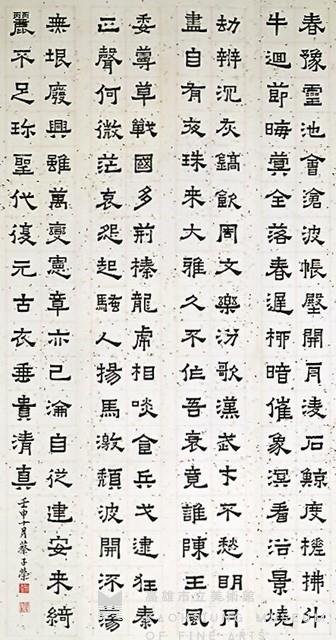 春豫靈池會滄波帳壂開舟凌石鯨度槎拂斗
牛迴節晦蓂全落春遲柳暗催象溟看浴景燒
劫辨沉灰鎬飲周文樂汾歌漢武才不愁明月
盡自有夜珠来大雅久不作吾衰竟誰陳王風
委蔓草戰國多荊榛龍虎相啖食兵戈逮狂秦
正聲何微茫哀怨起騷人揚馬激頹波開流蕩
無垠廢興雖萬變憲章亦已淪自從建安来綺
麗不足珍聖代復元古衣垂貴清真
壬申十月蔡子榮
高雄市立美術館
KAOHSIUNG MUSEUM
OF FINE ARTS